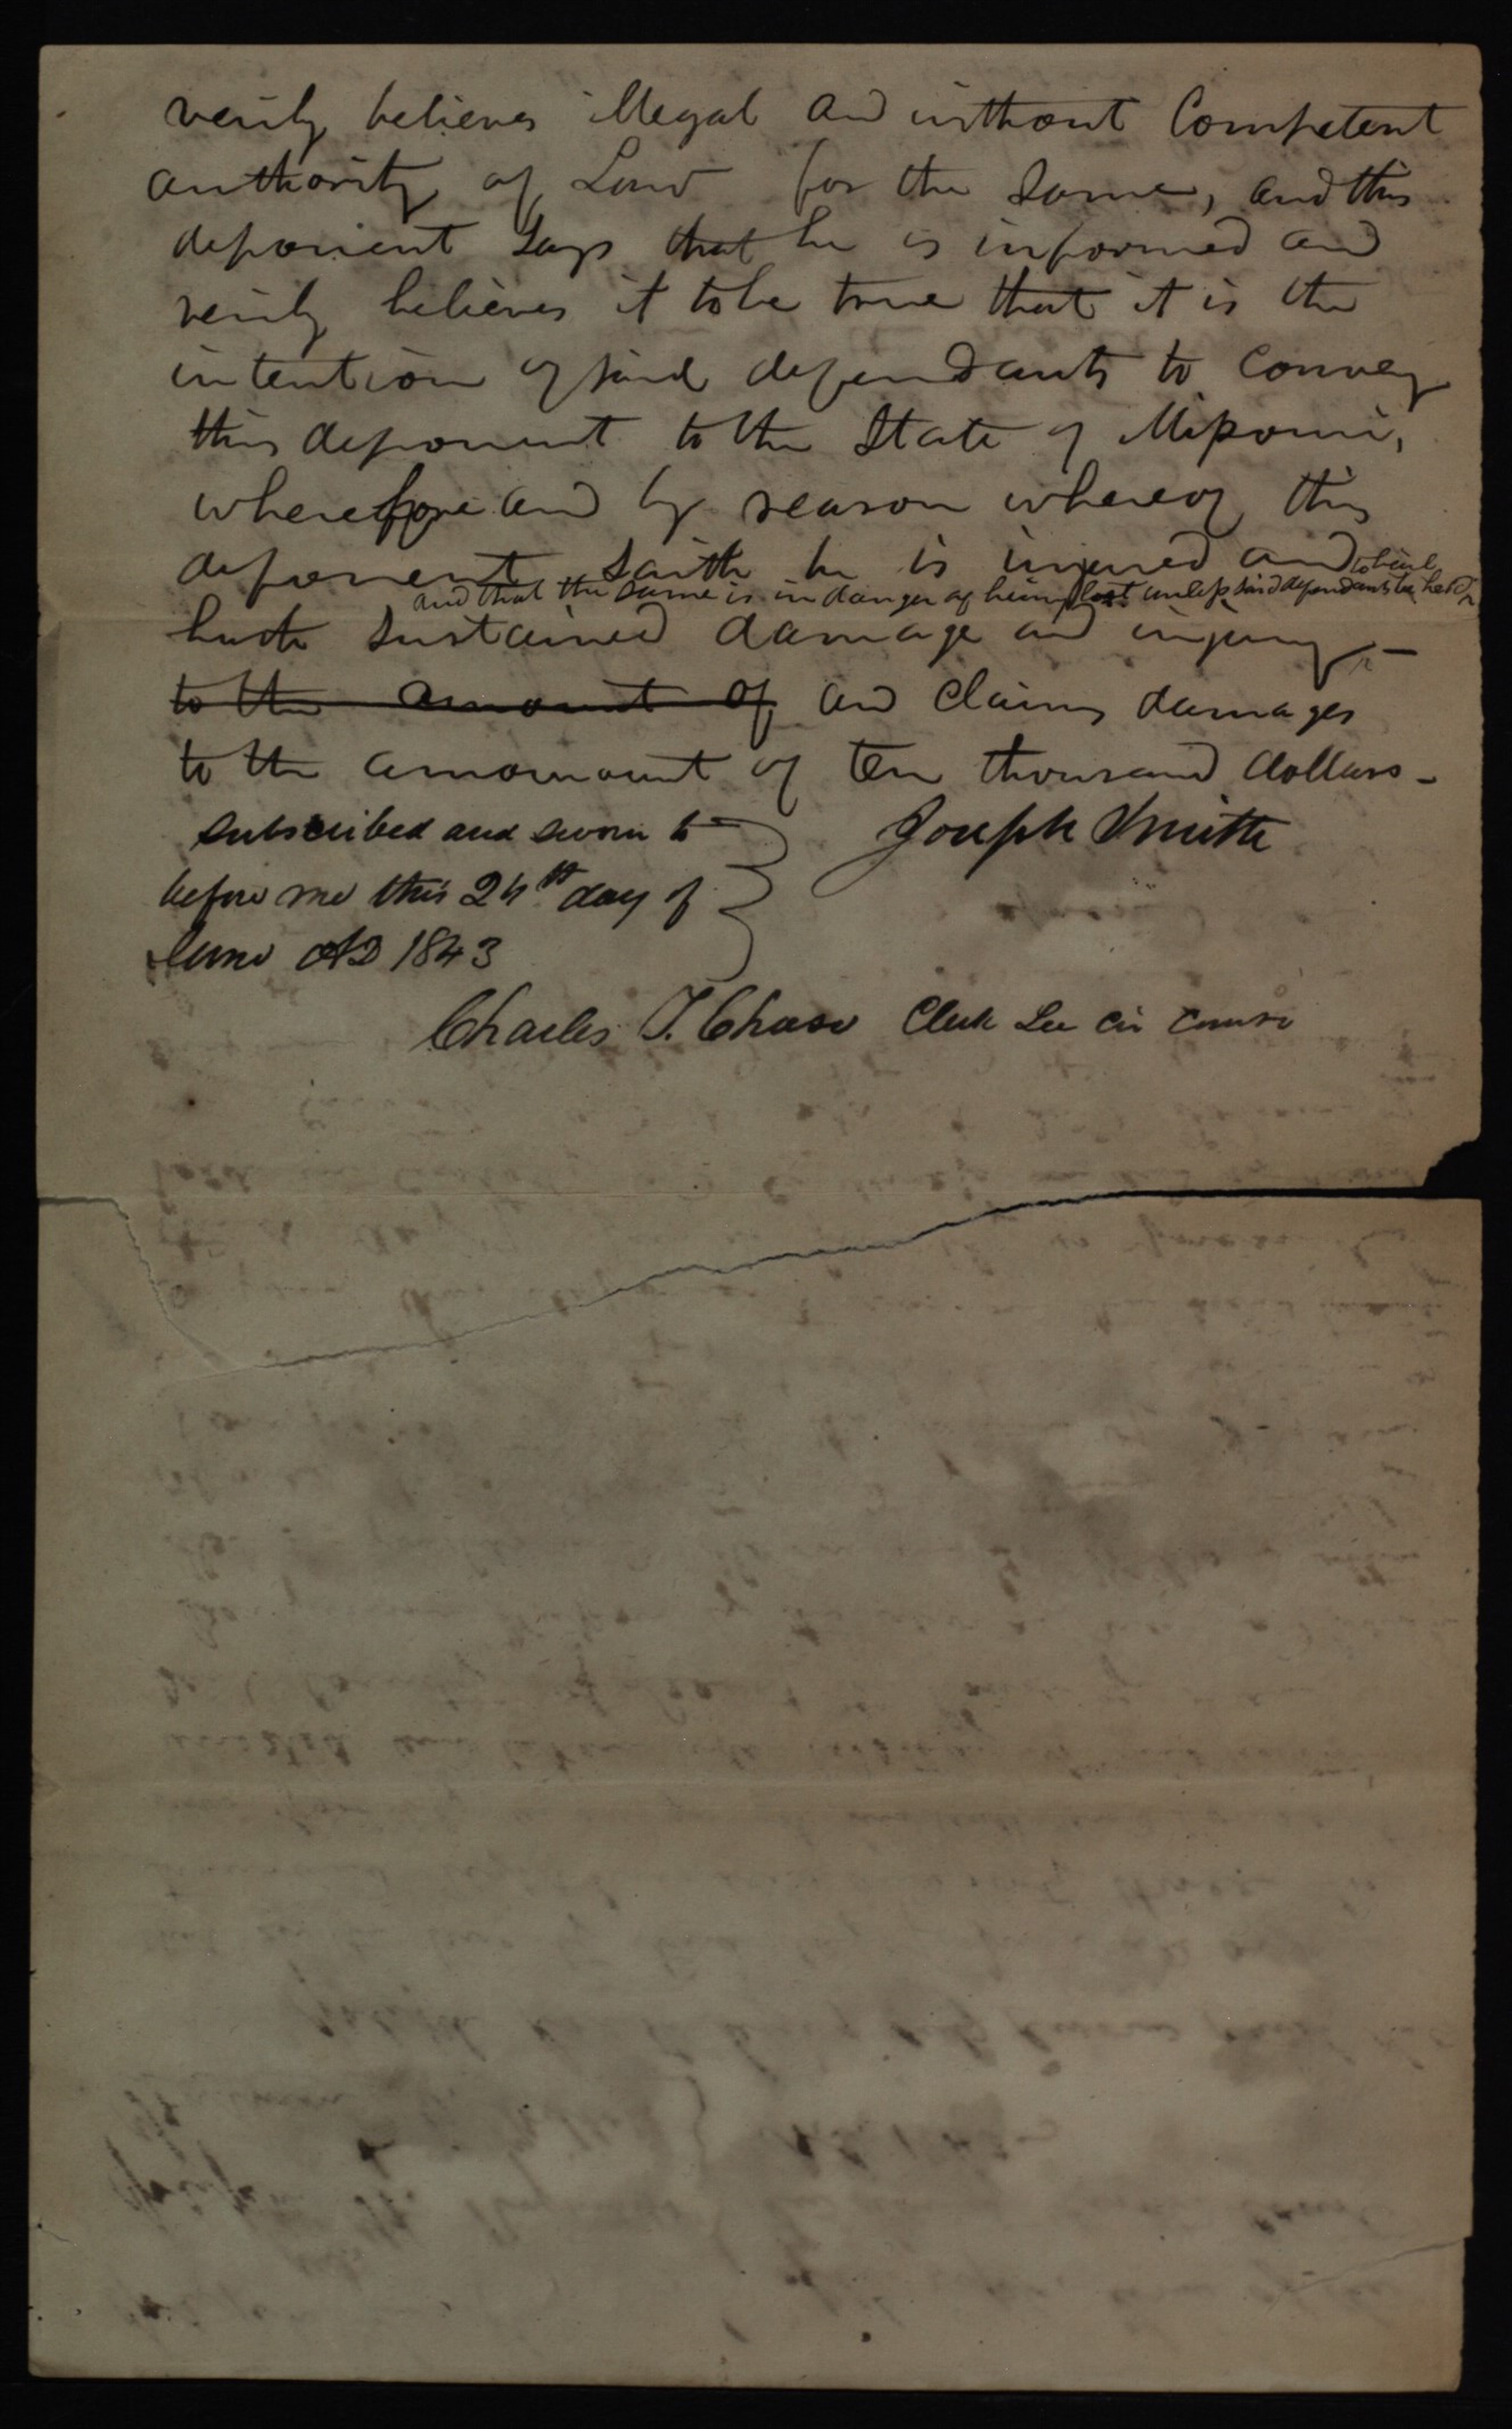 verily believes illegal and without Competent
authority of Law for the Same, and this
deponent Says that he is informed and
verily believes it to be true that it is the
intention of said defendants to convey
this deponent to the State of Missouri,
wherefore and by reason whereof this
deponent saith he is injured and
and that the same is in danger of being lost unless said defendants be held to bail
hath sustained damage and injury —
to the amount of and Claims damages
to the amomount of ten thousand dollars —
subscribed and sworn to
before me this 24th day of
June AD 1843
Joseph Smith
Charles T. Chase Clerk Lee Cir Court